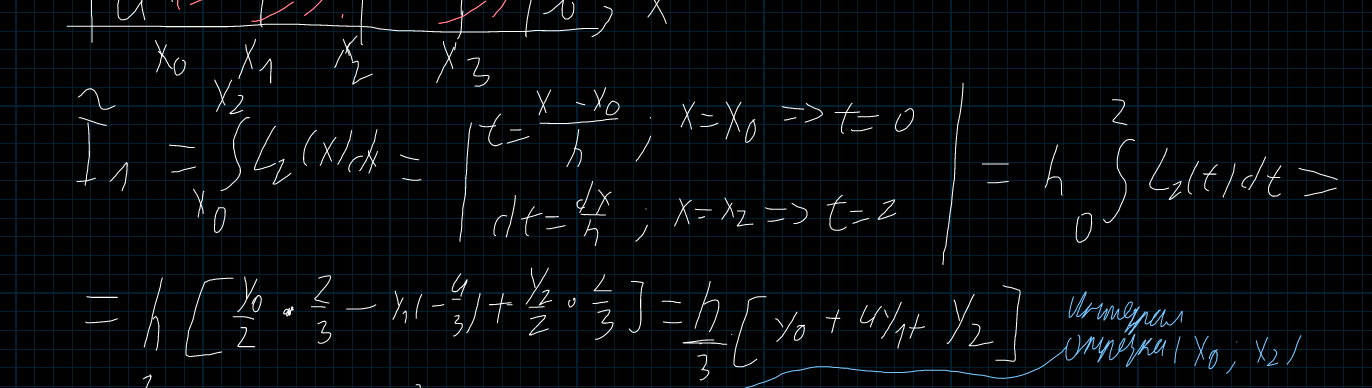 x₀ x₁ x₂ x₃ x
Ĩ₁ = ∫_{x₀}^{x₂} L₂(x)dx = | t = (x - x₀)/h ; x = x₀ => t = 0 ; dt = dx/h ; x = x₂ => t = 2 | = h ∫₀² L₂(t)dt =
= h [ y₀/2 · 2/3 - y₁(-4/3) + y₂/2 · 2/3 ] = h/3 [ y₀ + 4y₁ + y₂ ] интеграл
отрезка (x₀; x₂)